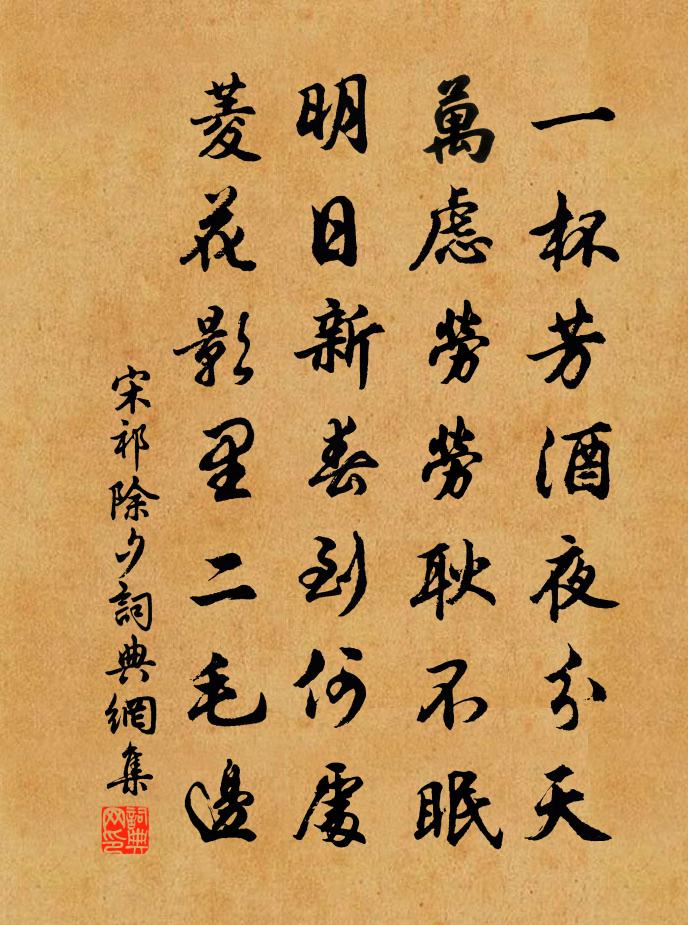 一杯芳酒夜分天
萬慮勞勞耿不眠
明日新春到何處
菱花影里二毛邊
宋祁除夕詞典網集
詞典网印